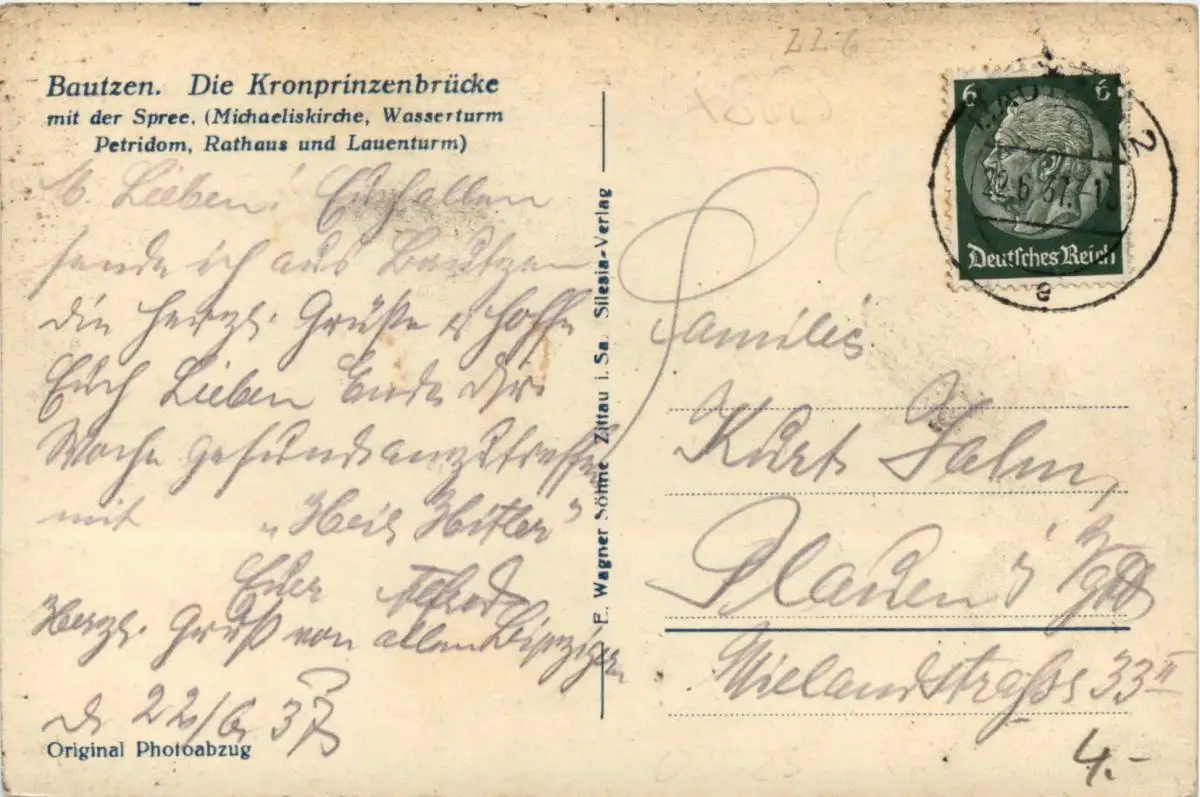 Bautzen. Die Kronprinzenbrücke
mit der Spree. (Michaeliskirche, Wasserturm
Petridom, Rathaus und Lauenturm)
M. Lieben! Euch allen
sende ich aus Bautzen
die herzl. Grüße & hoffe
Euch Lieben Ende dsr.
Woche gesund anzutreffen
mit „Heil Hitler"
Euer Alfred
Herzl. Gruß von allen
d. 22/6. 37
Original Photoabzug
E. Wagner Söhne Zittau i. Sa. Silesia-Verlag
22 6
6 6
BAUTZEN 2
22.6.37.-13
e
Deutsches Reich
Familie
Kurt
Plauen i Vgtl
Wielandstraße 33 II
4.-